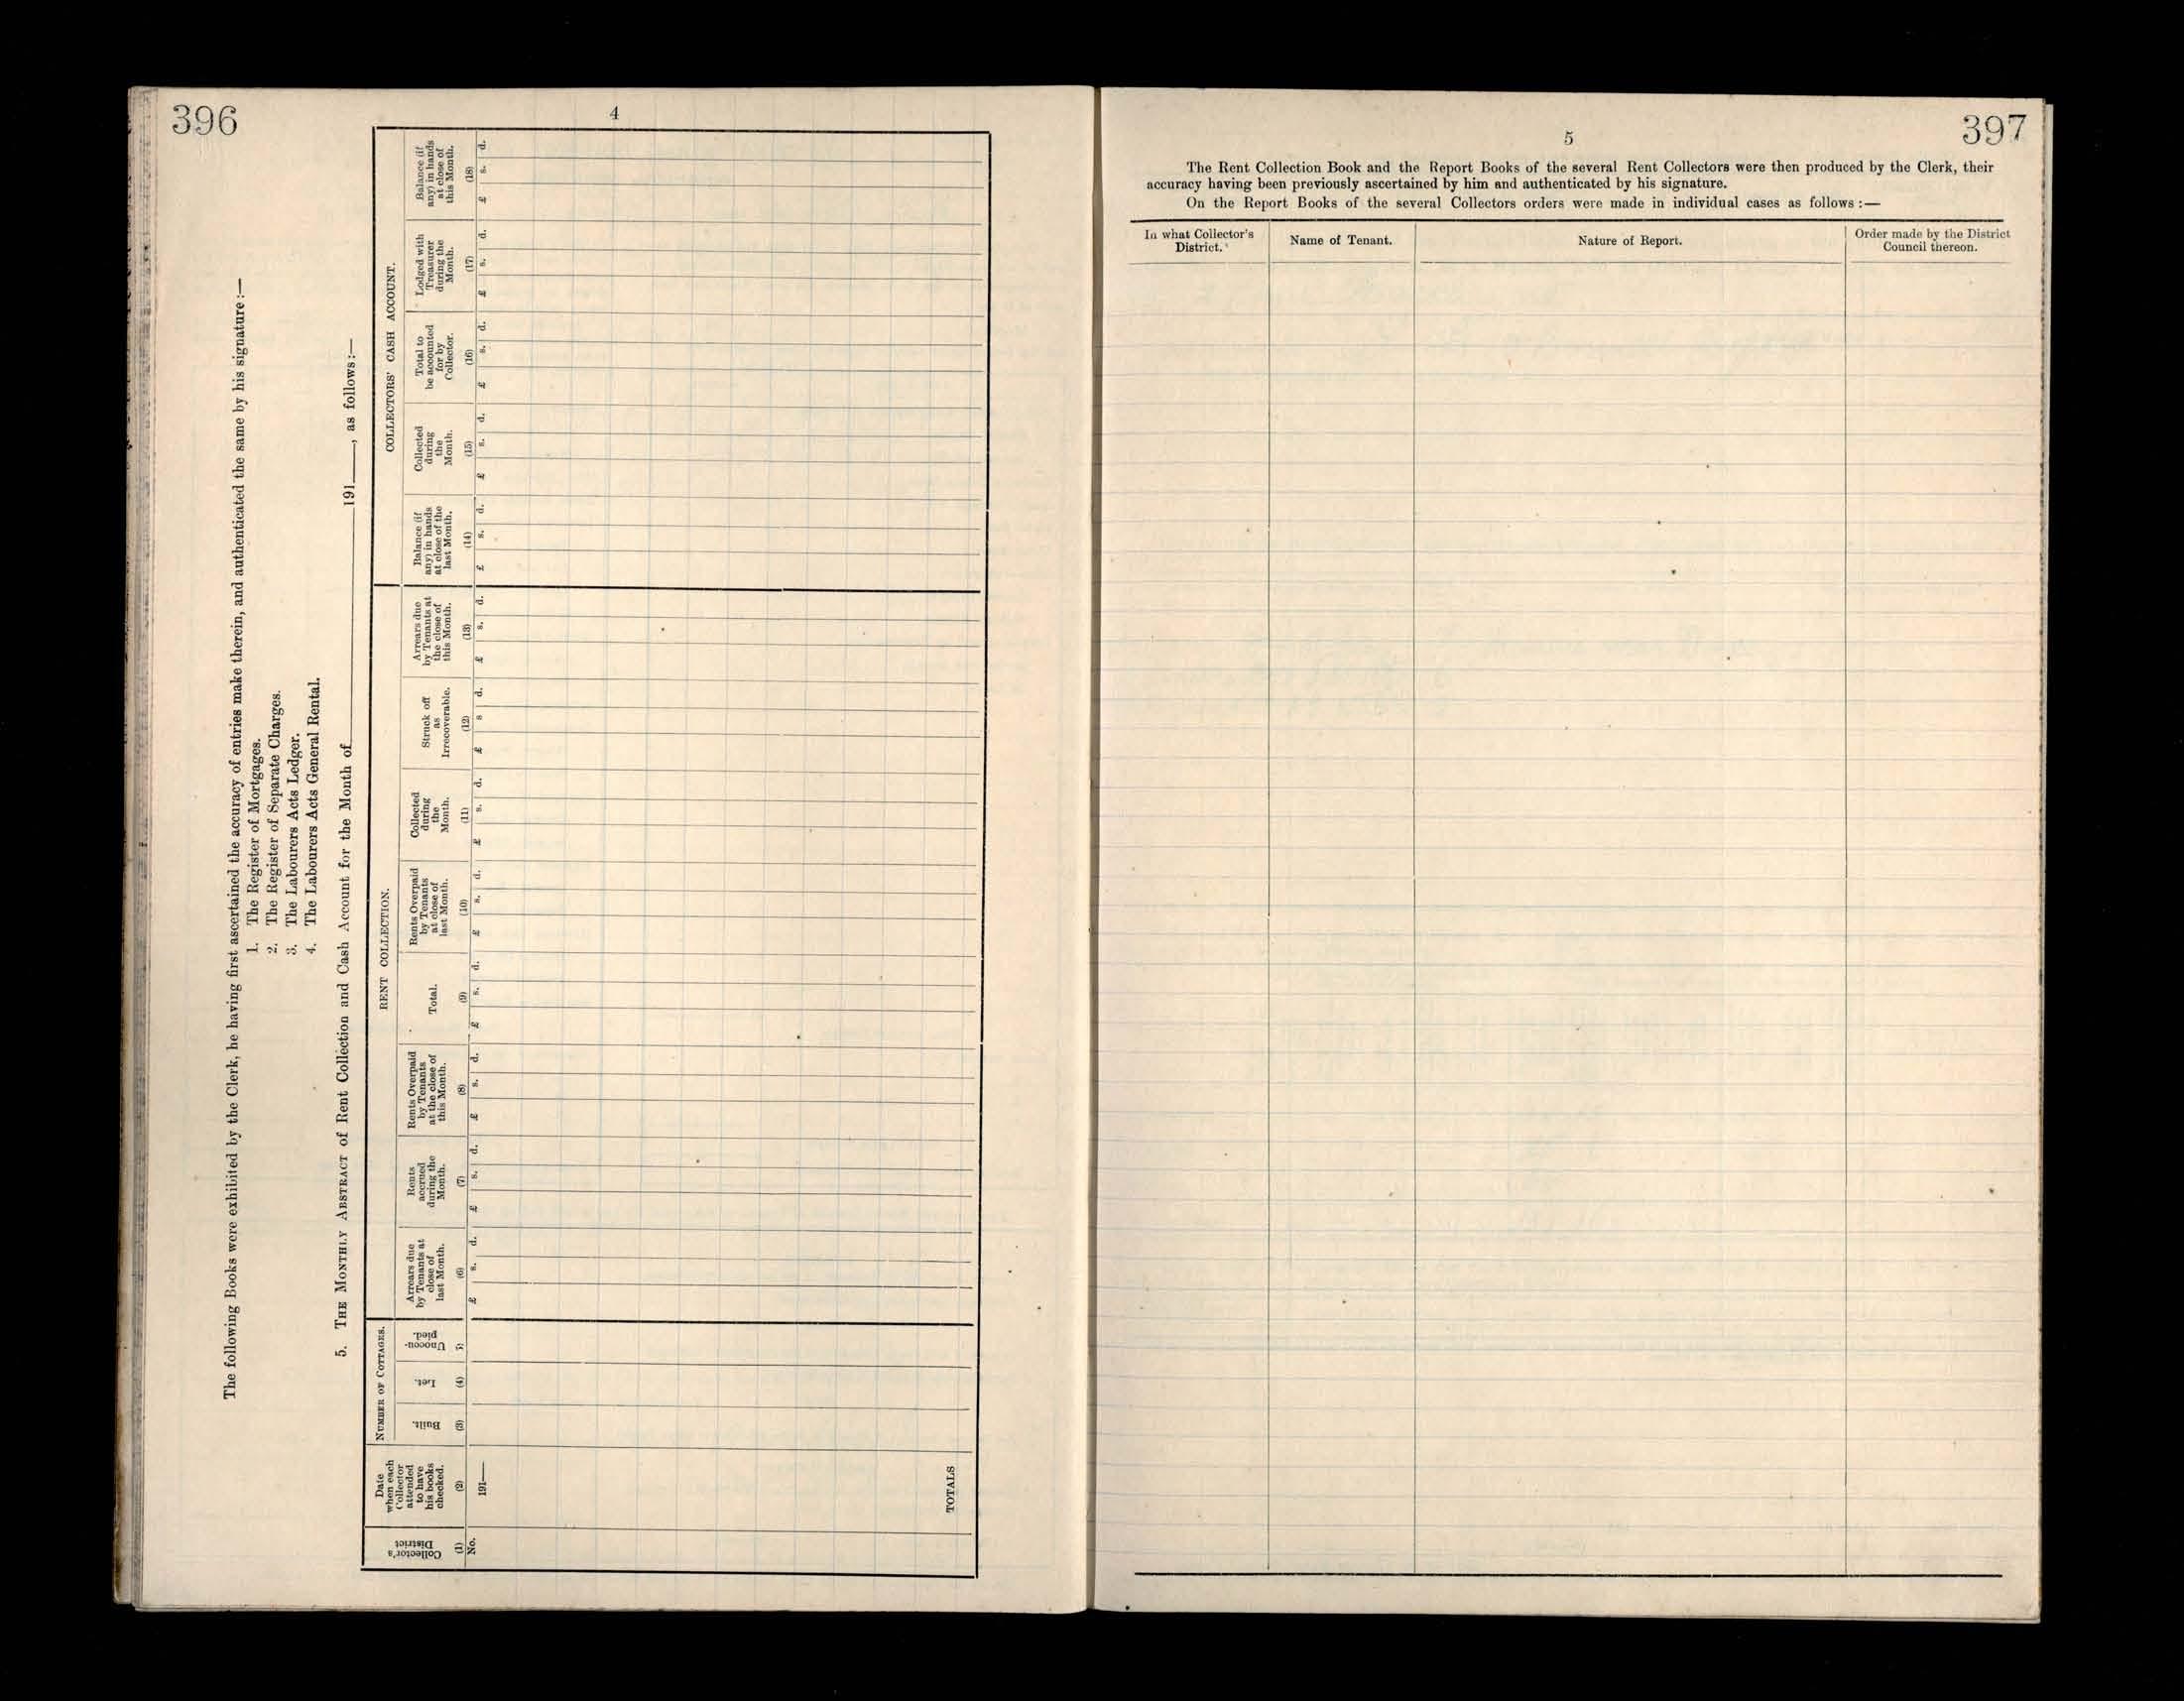 396
4
The following Books were exhibited by the Clerk, he having first ascertained the accuracy of entries make therein, and authenticated the same by his signature :—
1. The Register of Mortgages.
2. The Register of Separate Charges.
3. The Labourers Acts Ledger.
4. The Labourers Acts General Rental.
5. THE MONTHLY ABSTRACT of Rent Collection and Cash Account for the Month of 191 , as follows :—
Collector's District
(1)
No.
Date when each Collector attended to have his books checked.
(2)
191—
NUMBER OF COTTAGES.
Built.
(3)
Let.
(4)
Unoccu-
pied.
5
RENT COLLECTION.
Arrears due by Tenants at close of last Month.
(6)
£ s. d.
Rents accrued during the Month.
(7)
£ s. d.
Rents Overpaid by Tenants at the close of this Month.
(8)
£ s. d.
Total.
(9)
£ s. d.
Rents Overpaid by Tenants at close of last Month.
(10)
£ s. d.
Collected during the Month.
(11)
£ s. d.
Struck off as Irrecoverable.
(12)
£ s d.
Arrears due by Tenants at the close of this Month.
(13)
£ s. d.
COLLECTORS' CASH ACCOUNT.
Balance (if any) in hands at close of the last Month.
(14)
£ s. d.
Collected during the Month.
(15)
£ s. d.
Total to be accounted for by Collector.
(16)
£ s. d.
Lodged with Treasurer during the Month.
(17)
£ s. d.
Balance (if any) in hands at close of this Month.
(18)
£ s. d.
TOTALS
397
5
The Rent Collection Book and the Report Books of the several Rent Collectors were then produced by the Clerk, their
accuracy having been previously ascertained by him and authenticated by his signature.
On the Report Books of the several Collectors orders were made in individual cases as follows :—
In what Collector's
District.
Name of Tenant.
Nature of Report.
Order made by the District
Council thereon.